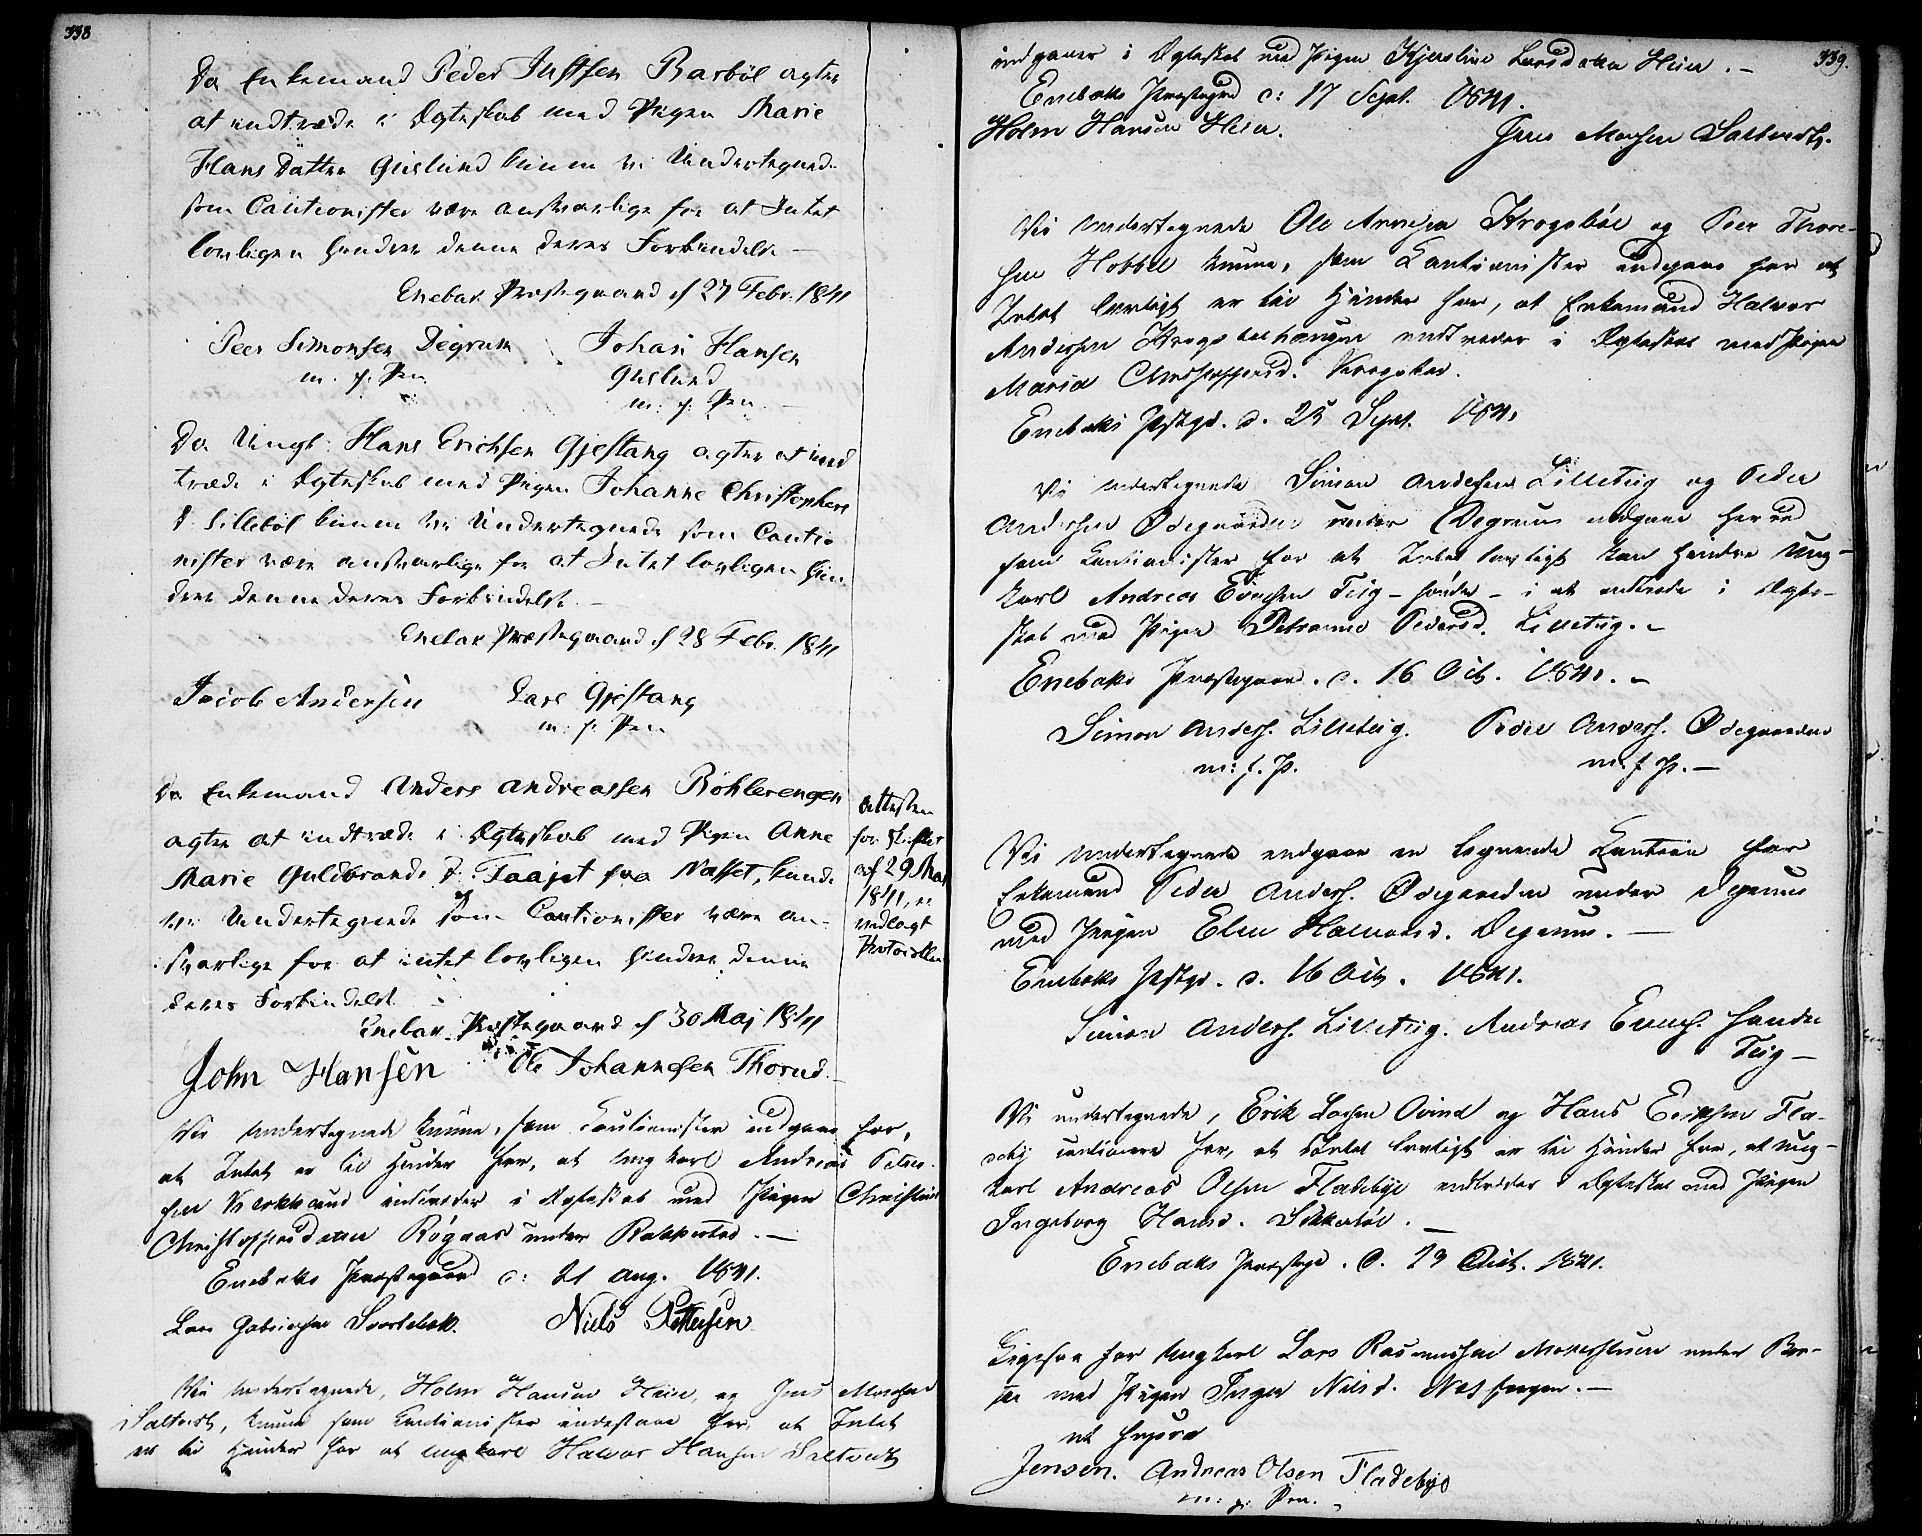 338
Da Enkemand Peder Justsen Barböl agter
at indtræde i Ægteskab med Pigen Marie
Hans Datter Guslund kunne vi Undertegnede
som Cautionister være ansvarlige for at Intet
lovligen hindrer denne deres Forbindelse —
Enebak Præstegaard d 27 Febr. 1841
Peer Simonsen Degrum Johan Hansen
m. f. Pen Guslund
m: f. Pen.
Da Ungk: Hans Erichsen Gjestang agter at ind
træde i Ægteskab med Pigen Johanne Christophers
D. Lilleböl kunne vi Undertegnede som Cautio
nister være ansvarlige for at Intet lovligen hin
drer denne deres Forbindelse. —
Enebak Præstegaard d 28 Febr. 1841
Jacob Andersen Lars Gjestang
m: f: Pen
Da Enkemand Anders Andreassen Böhlerengen
agter at indtræde i Ægteskab med Pigen Anne
Marie Guldbrands D. Taajet fra Næsset, kunde
vi Undertegnede som Cautionister være an-
svarlige for at intet lovligen hindrer denne
deres Forbindelse
Attesten
for Skiftet
af 29 Mai
1841, er
indlagt
Protocollen
Enebak Præstegaard d 30 Maj 1841
John Hansen Ole Johannesen Thorud
Vi undertegnede kunne, som Cautionister indgaae for,
at Intet er til Hinder for, at Ungkarl Andreas Peter-
sen indtræder i Ægteskab med Pigen Christine
Christophersdatter Rögnas under Rakkestad. —
Enebaks Præstegaard d: 21 Aug. 1841.
Lars Gabrielsen Svartebæk. Niels Pettersen
Vi undertegnede, Holm Hansen Heier, og Jens Mosesen
Saltvedt, kunne som Cautionister indestaae for, at Intet
er til Hinder for at Ungkarl Halvor Hansen Saltvedt
339.
indgaaer i Ægteskab med Pigen Kjerstine Larsdatter Heier. —
Enebaks Præstegrd d: 17 Sept. 1841.
Holm Hansen Heier. Jens Mosesen Saltvedt.
Vi undertegnede Ole Arnesen Krogsböl og Peer Thore-
sen Hobbel kunne, som Cautionister indgaae for at
Intet lovligt er til Hinder for, at Enkemand Halvor
Andersen indtræder i Ægteskab med Pigen
Maria Christophersd. Krogsbøl.
Enebaks Pstgd. d. 25 Sept. 1841.
Vi undertegnede Simon Andersen Lilleteig og Peder
Andersen Ødegaarden under Degrum indgaae herved
som Cautionister for at Intet lovligt kan hindre Ung-
karl Andreas Evensen Teig - søndre - i at indtræde i Ægte-
skab med Pigen Petronne Pedersd. Lilleteig. —
Enebaks Præstegaard. d. 16 Oct. 1841. —
Simon Anders. Lilleteig. Peder Anders. Ødegaarden
m: f. P. m. f P. —
Vi undertegnede indgaae en lignende Caution for
Enkemand Peder Anders. Ødegaarden under Degrum
med Pigen Elen Halvorsd. Degrum. —
Enebaks Pstgd. d. 16 Oct. 1841.
Simon Anders. Lilleteig. Andreas Evens. søndre
Teig —
Vi undertegnede, Erik Larsen Ovind og Hans Erichsen Fla-
deby cautionere for, at Intet lovligt er til Hinder for, at Ung-
karl Andreas Olsen Fladebye indtræder i Ægteskab med Pigen
Ingeborg Hansd. Sikkebøl. —
Enebaks Præstgd. d. 29 Oct. 1841.
Ligesaa for Ungkarl Lars Rasmussen under
med Pigen Inger Nilsd. —
ut supra
Jensen. Andreas Olsen Fladebye
m: p: Pen. —